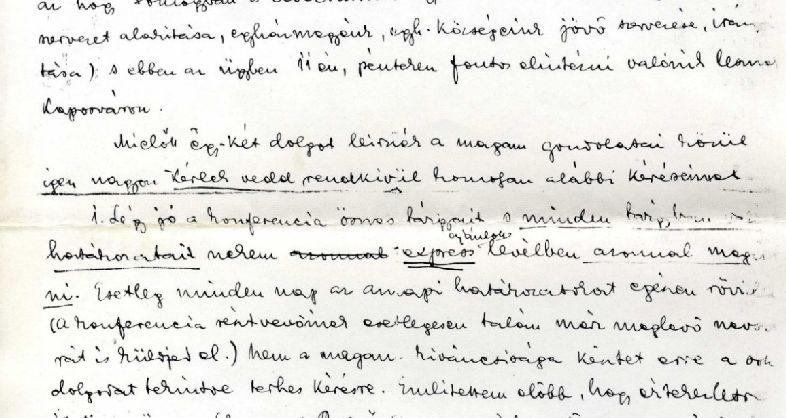 az hogy
szervezet alakítása, egyházmegyénk, egyh. községeink jövő szervezése, irányí-
tása) s ebben az ügyben 11 én, pénteken fontos elintézni valónk lenne
Kaposváron.
Mielőtt egy-két dolgot leírnék a magam gondolatai közül
igen nagyon kérlek vedd rendkívül komolyan alábbi kéréseimet
1. Légy jó a konferencia összes tárgyait s minden
határozatait nekem azonnal express levélben azonnal meg
ni. Esetleg minden nap az aznapi határozatokat egészen rövi
(A konferencia résztvevőinek esetlegesen talán már meglevő nevs.
rát is küldjed el.) Nem a magam kíváncsisága késztet erre a sok
dolgodat tekintve terhes kérésre. Említettem előbb, hogy